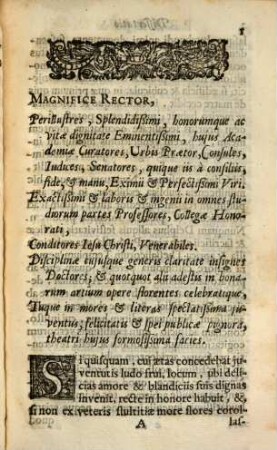 1
MAGNIFICE RECTOR,
Perillustres, Splendidissimi, honorumque ac
vitæ dignitate Eminentissimi, hujus Aca-
demiæ Curatores, Urbis Prætor, Consules,
Iudices, Senatores, quique iis à consiliis,
fide, & manu, Eximii & Perfectissimi Viri.
Exactissimi & laboris & ingenii in omnes stu-
diorum partes Professores, Collegæ Hono-
rati,
Conditores Iesu Christi, Venerabiles.
Disciplinæ cujusque generis claritate insignes
Doctores; & quotquot alii adestis in bona-
rum artium opere florentes celebratique,
Tuque in mores & literas spectatissima ju-
ventus; felicitatis & spei publicæ pignora,
theatri hujus formosissima facies.
Si quisquam, cui ætas concedebat ju-
ventutis ludo frui, locum, ubi deli-
cias amore & blandiciis suis dignas
invenit, recte in honore habuit, &
si non ex veteris stultitiæ more flores corol-
A
las-